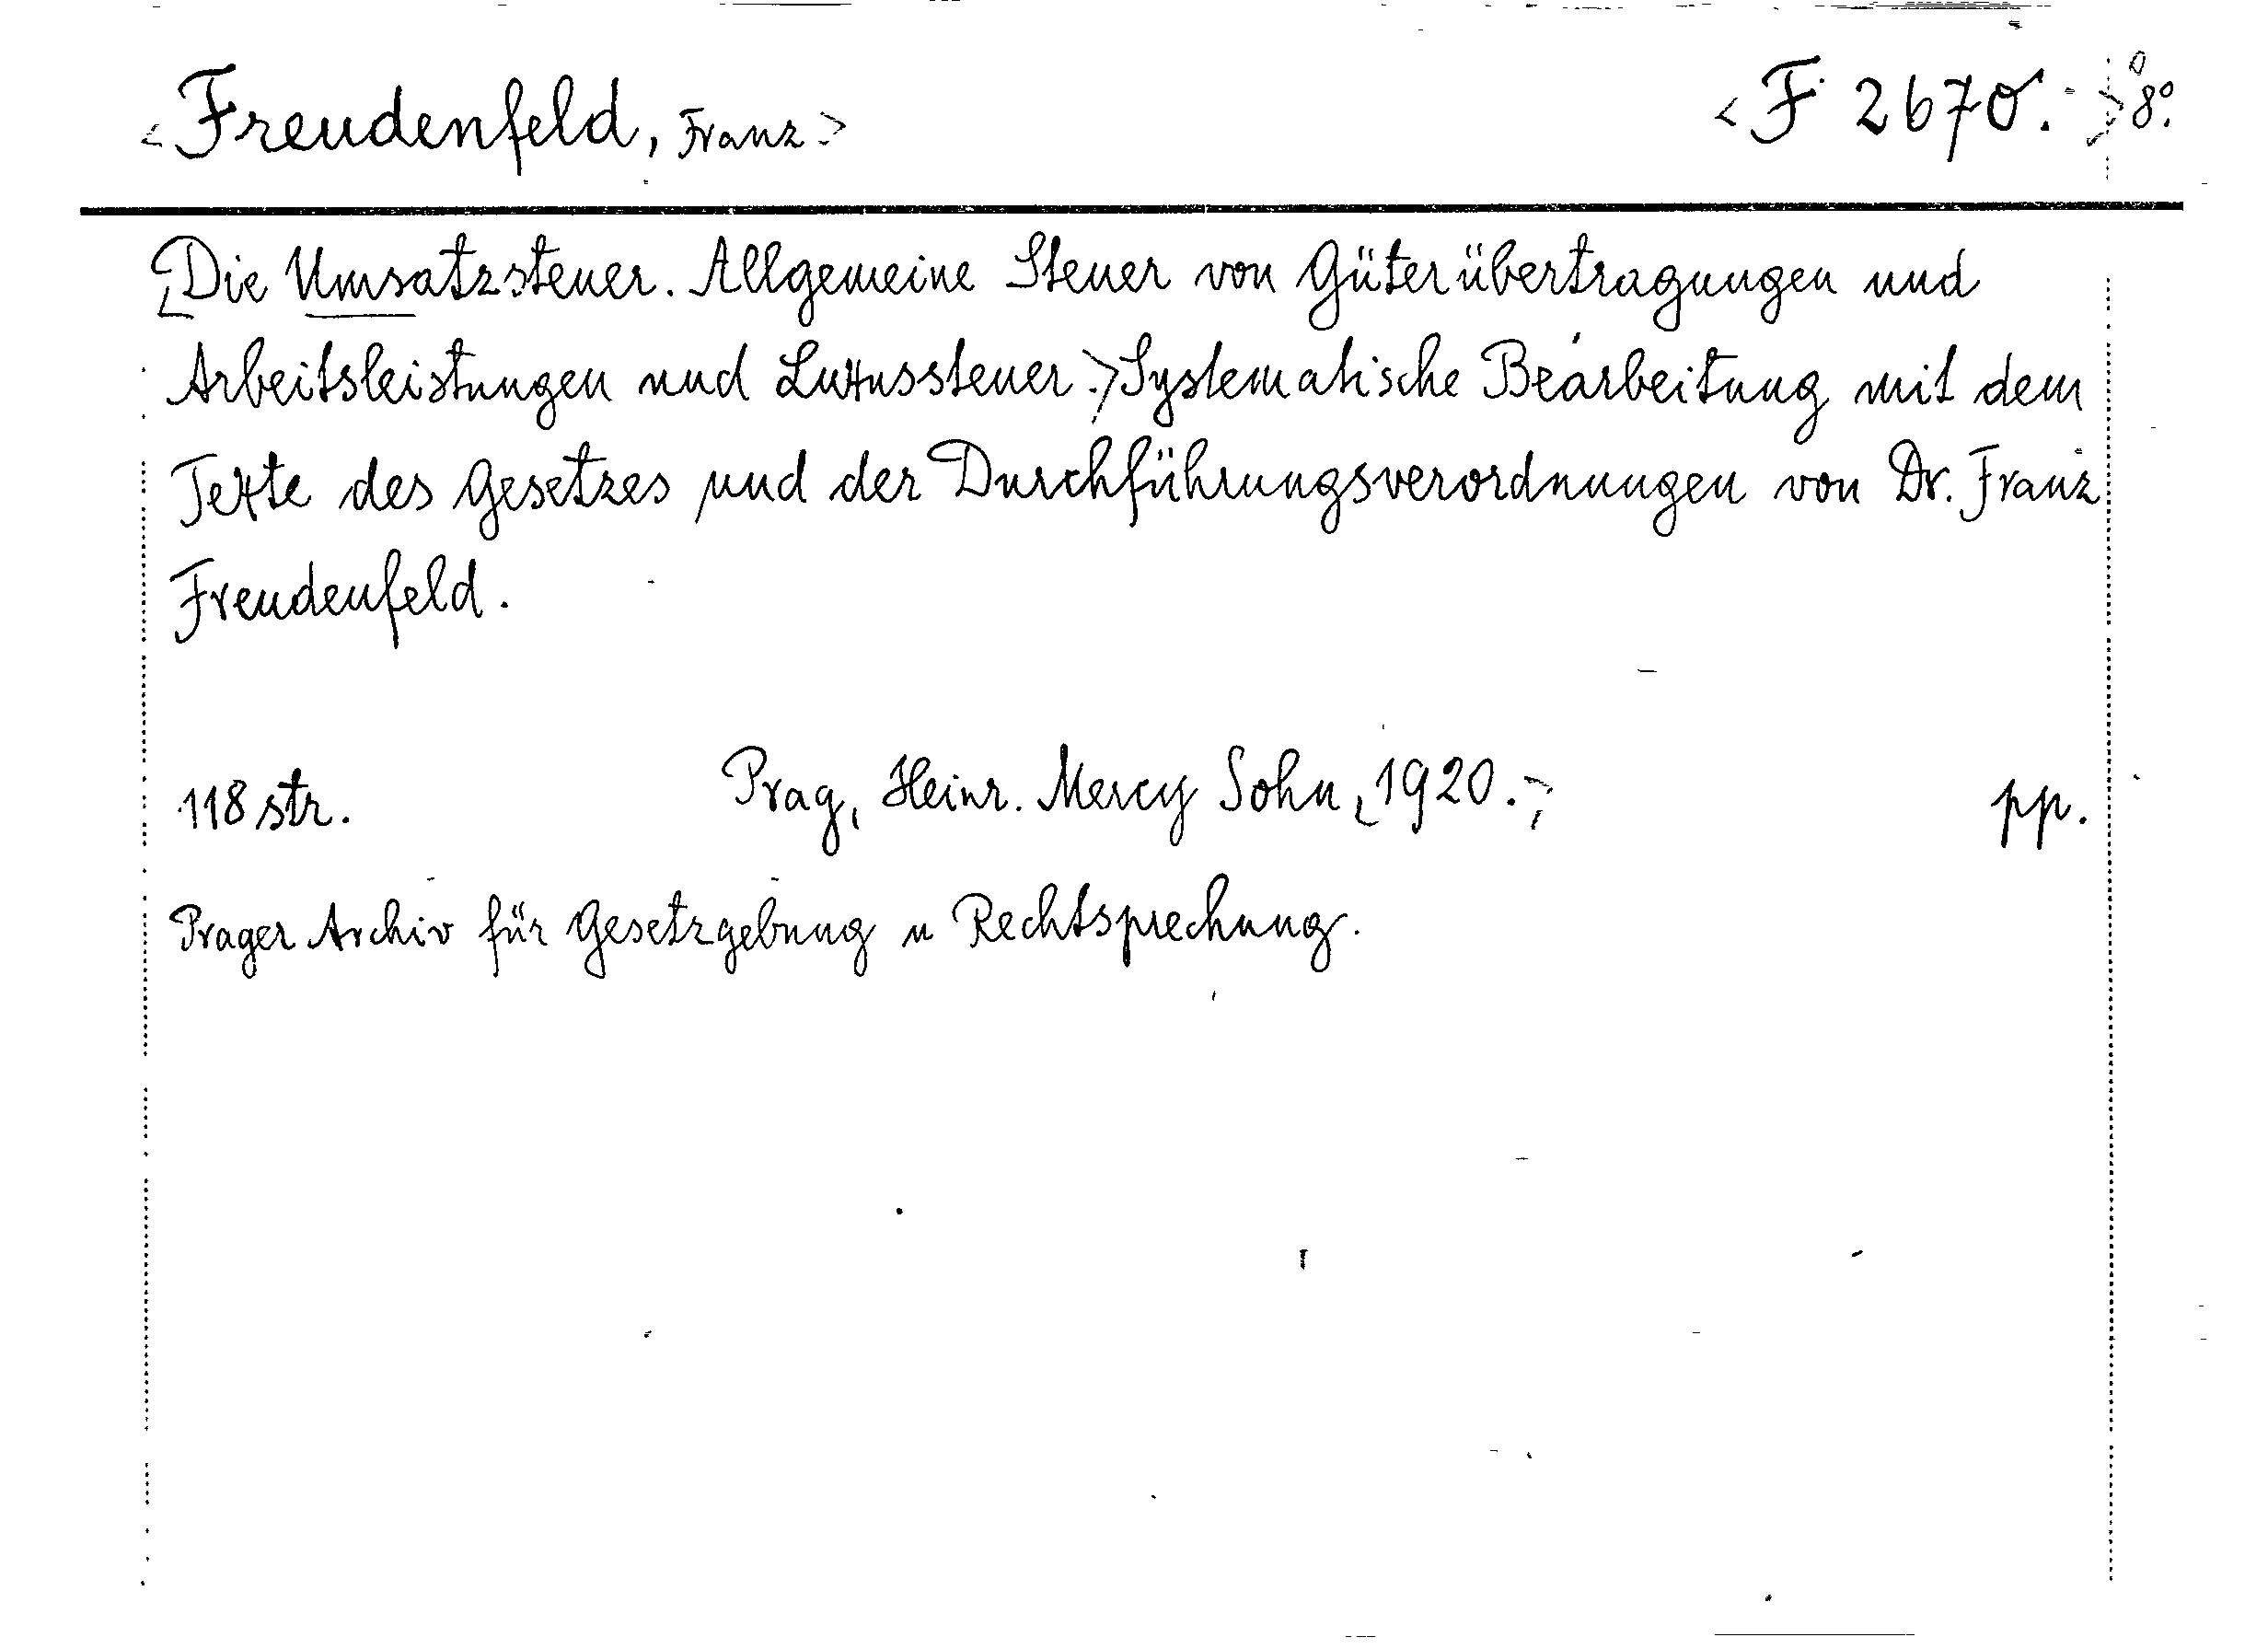 <Freudenfeld, Franz> <F 2670.> 8°.
<Die Umsatzsteuer. Allgemeine Steuer von Güterübertragungen und
Arbeitsleistungen und Luxussteuer.> Systematische Bearbeitung mit dem
Texte des Gesetzes und der Durchführungsverordnungen von Dr. Franz
Freudenfeld.
118 str. Prag, Heinr. Mercy Sohn, <1920.> pp.
Prager Archiv für Gesetzgebung u Rechtsprechung.